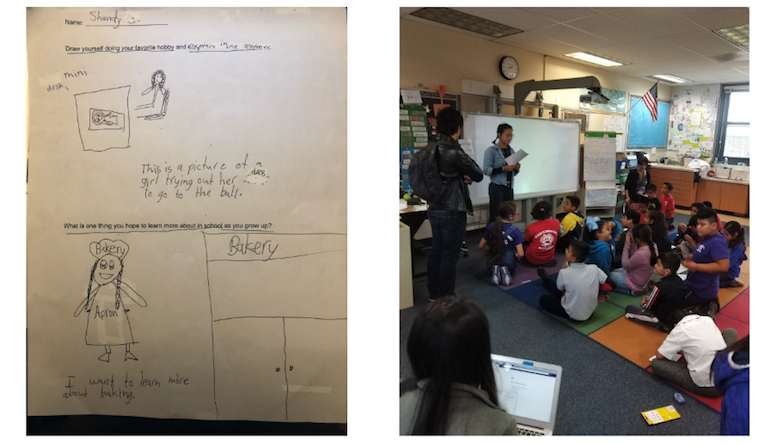 Name: Shandy
Draw yourself doing your favorite hobby and explain in one sentence.
mini
desk
This is a picture of a
girl trying out her dress
to go to the ball.
What is one thing you hope to learn more about in school as you grow up?
Bakery
Bakery
Apron
I want to learn more
about baking.